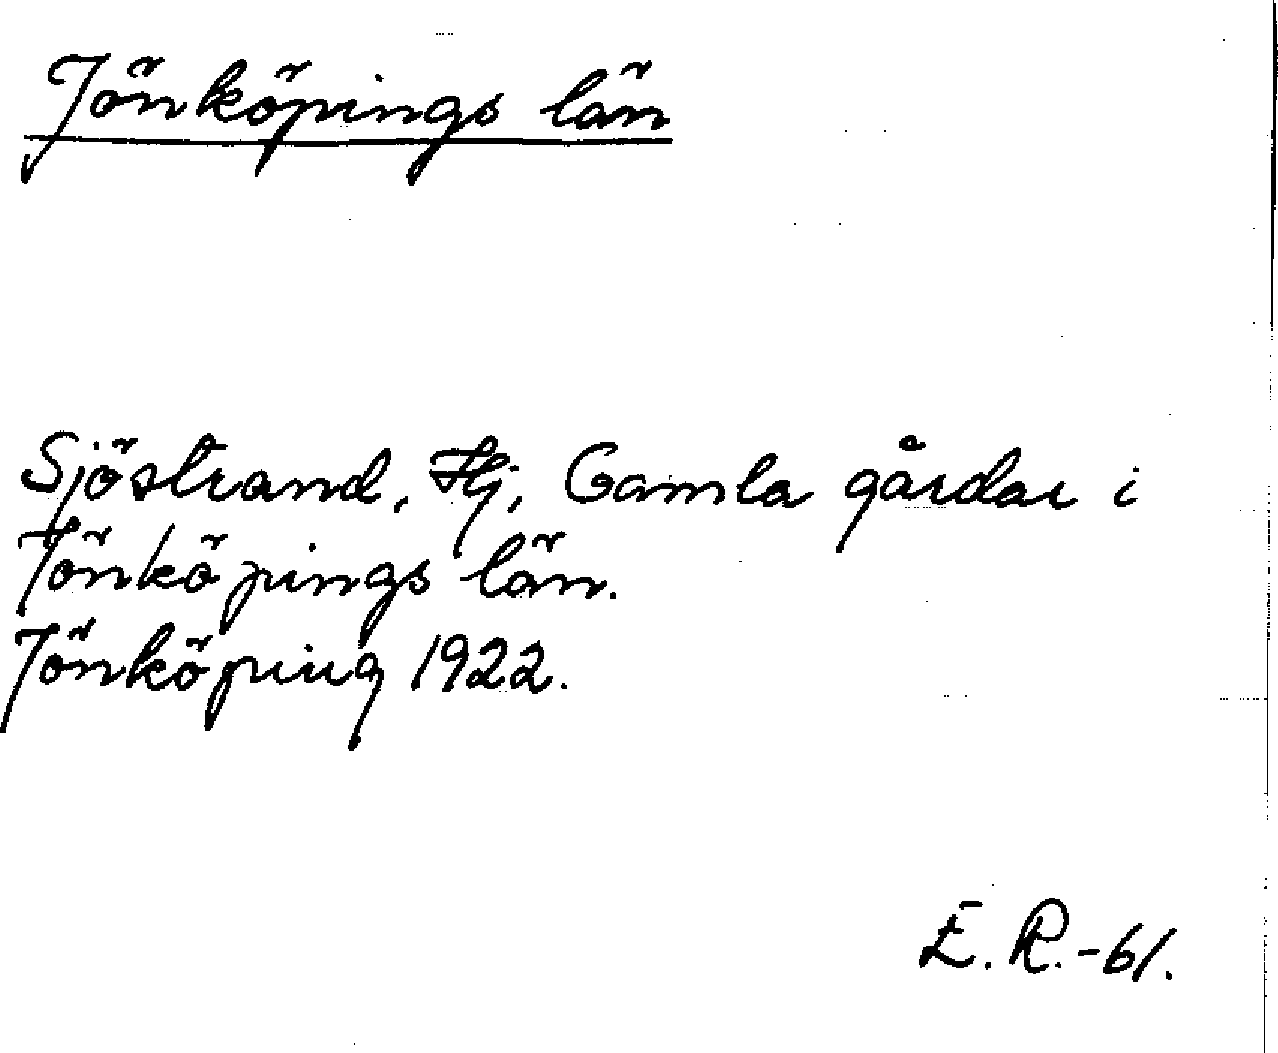 Jönköpings län
Sjöstrand, Hj, Gamla gårdar i
Jönköpings län.
Jönköping 1922.
E. R. -61.